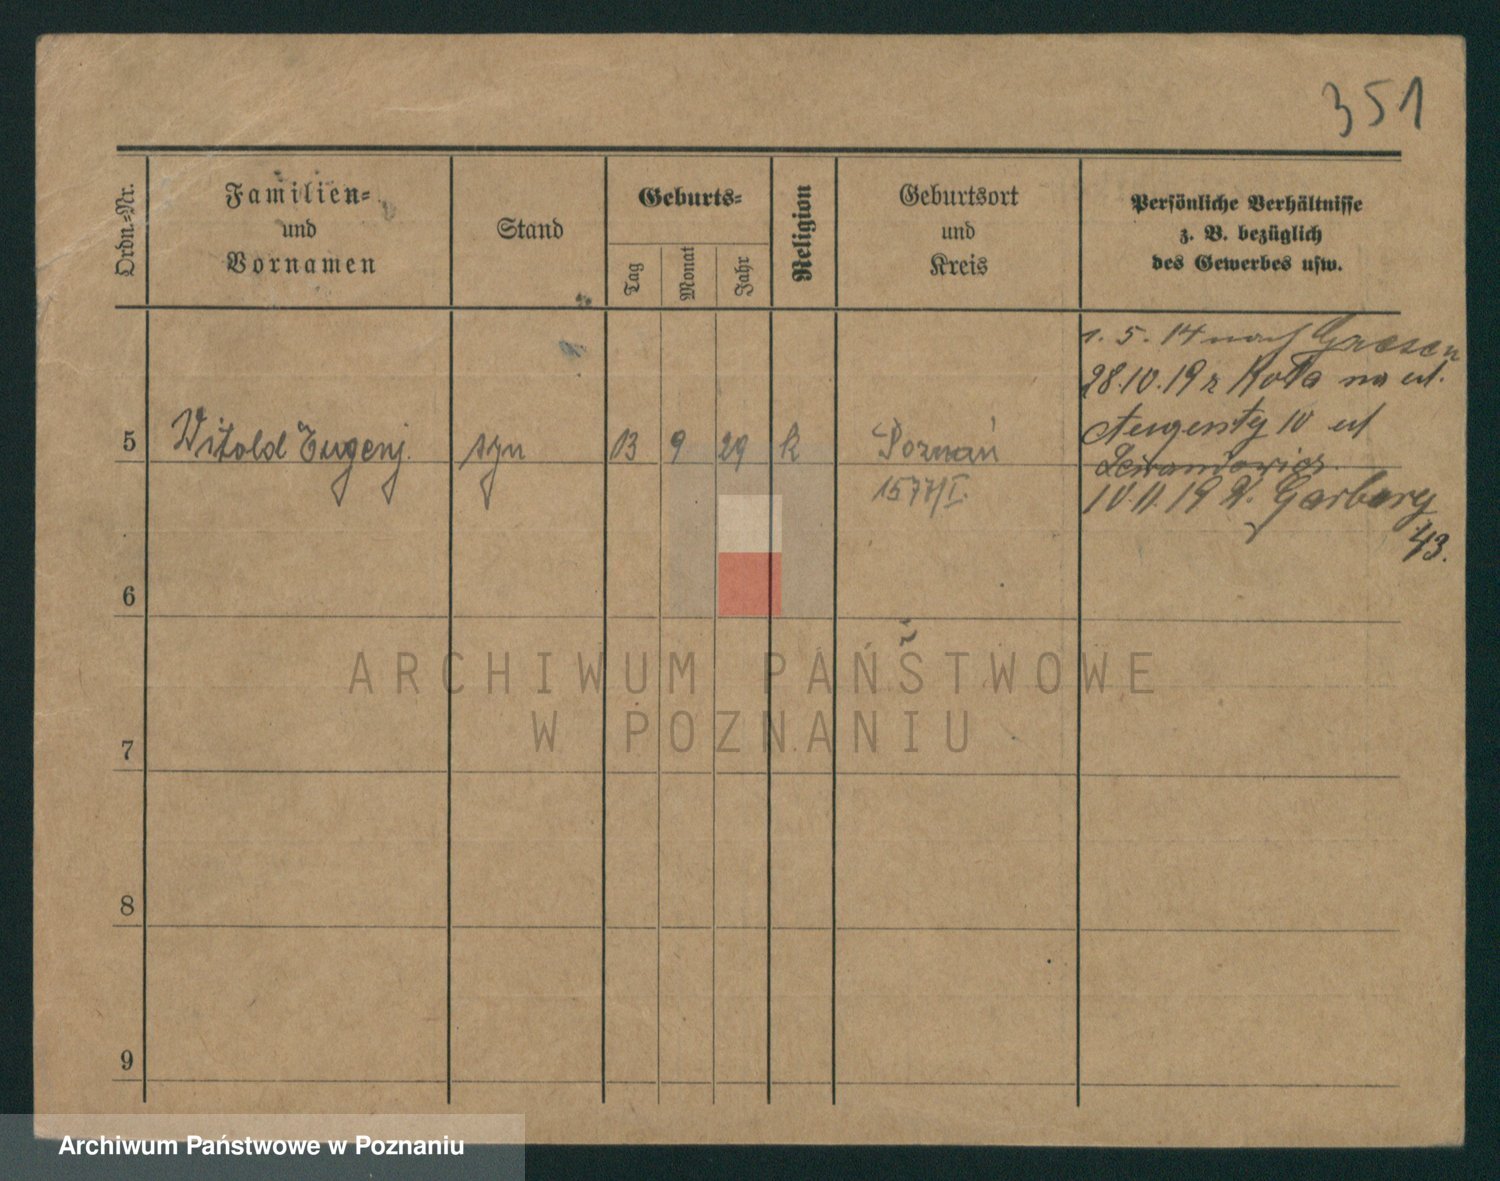 351
Ordn.-Nr.
Familien-
und
Vornamen
Stand
Geburts-
Tag
Monat
Jahr
Religion
Geburtsort
und
Kreis
Persönliche Verhältnisse
z. B. bezüglich
des Gewerbes usw.
1. 5. 14 nach Gnesen
28.10.19 z Koła na ul.
Augusty 10 ul
5 Witold Eugenj. syn 13 9 29 k Poznań
1577/I.
10.11.19 W. Garbary
43.
6
7
8
9
ARCHIWUM PAŃSTWOWE
W POZNANIU
Archiwum Państwowe w Poznaniu